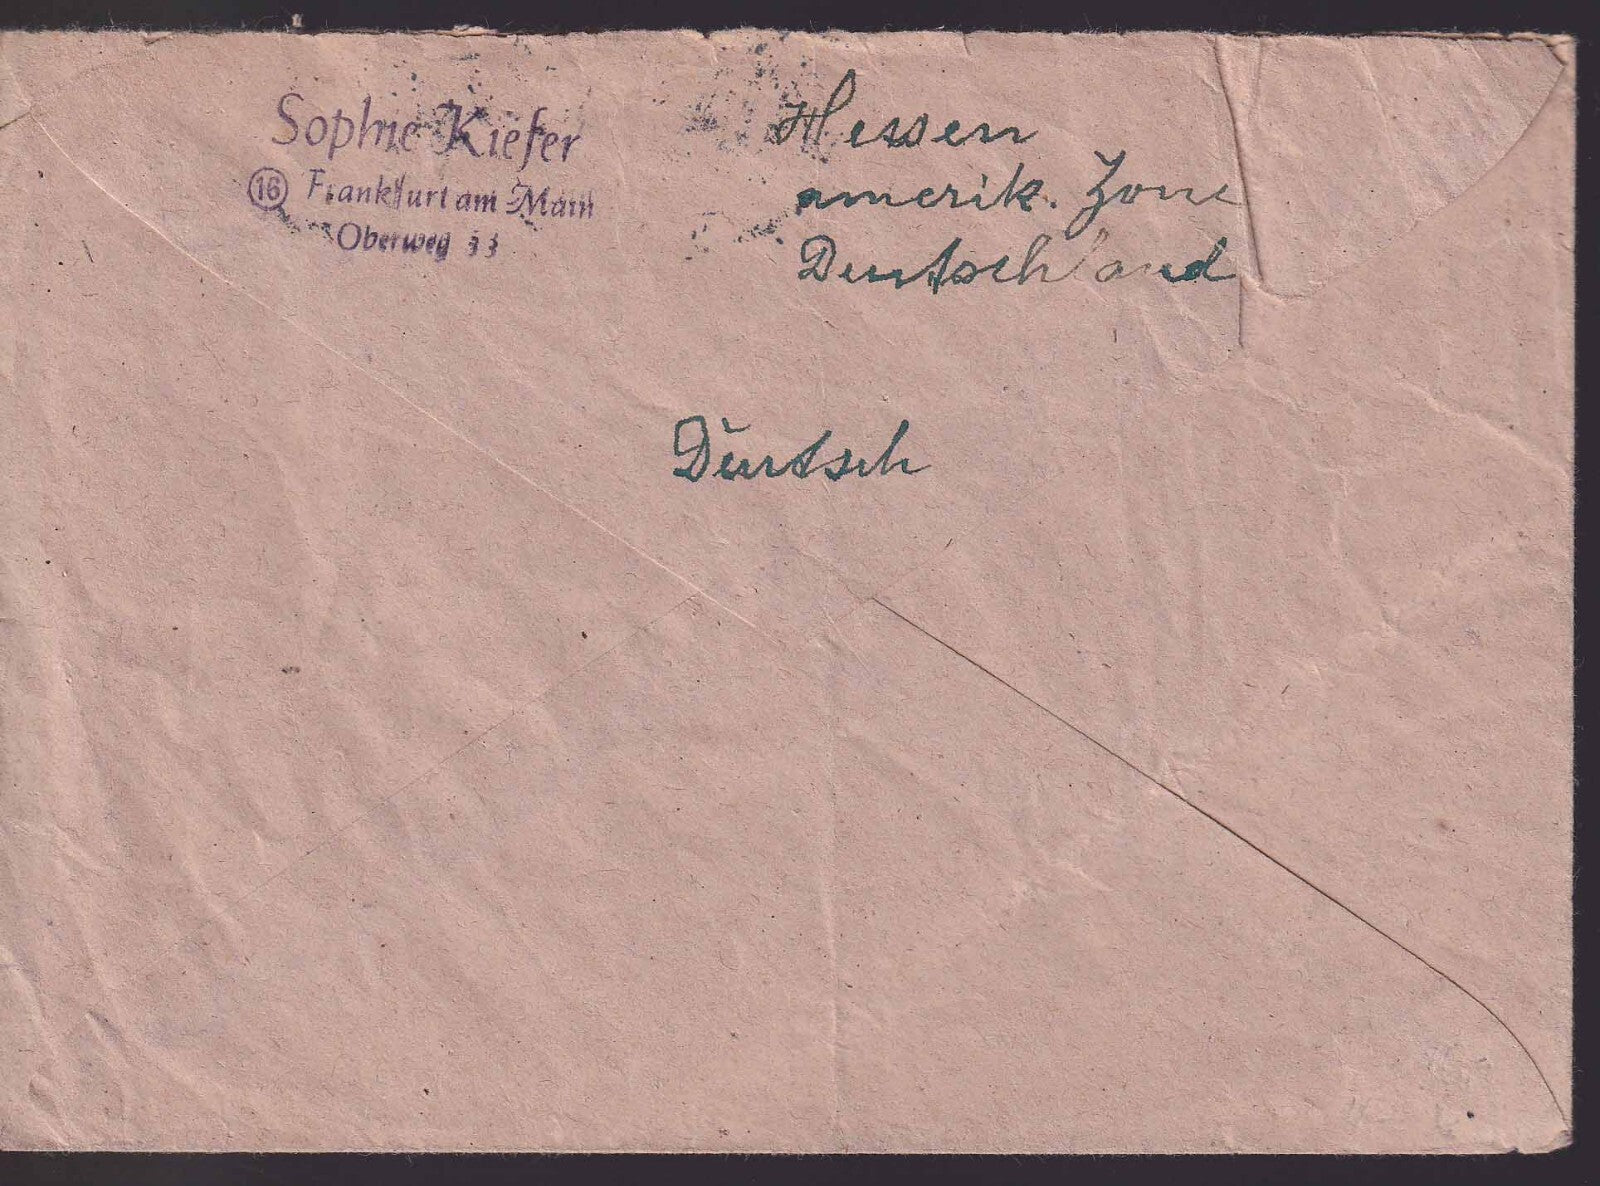 Sophie Kiefer
16 Frankfurt am Main
Oberweg 33
Hessen
amerik. Zone
Deutschland
Deutsch